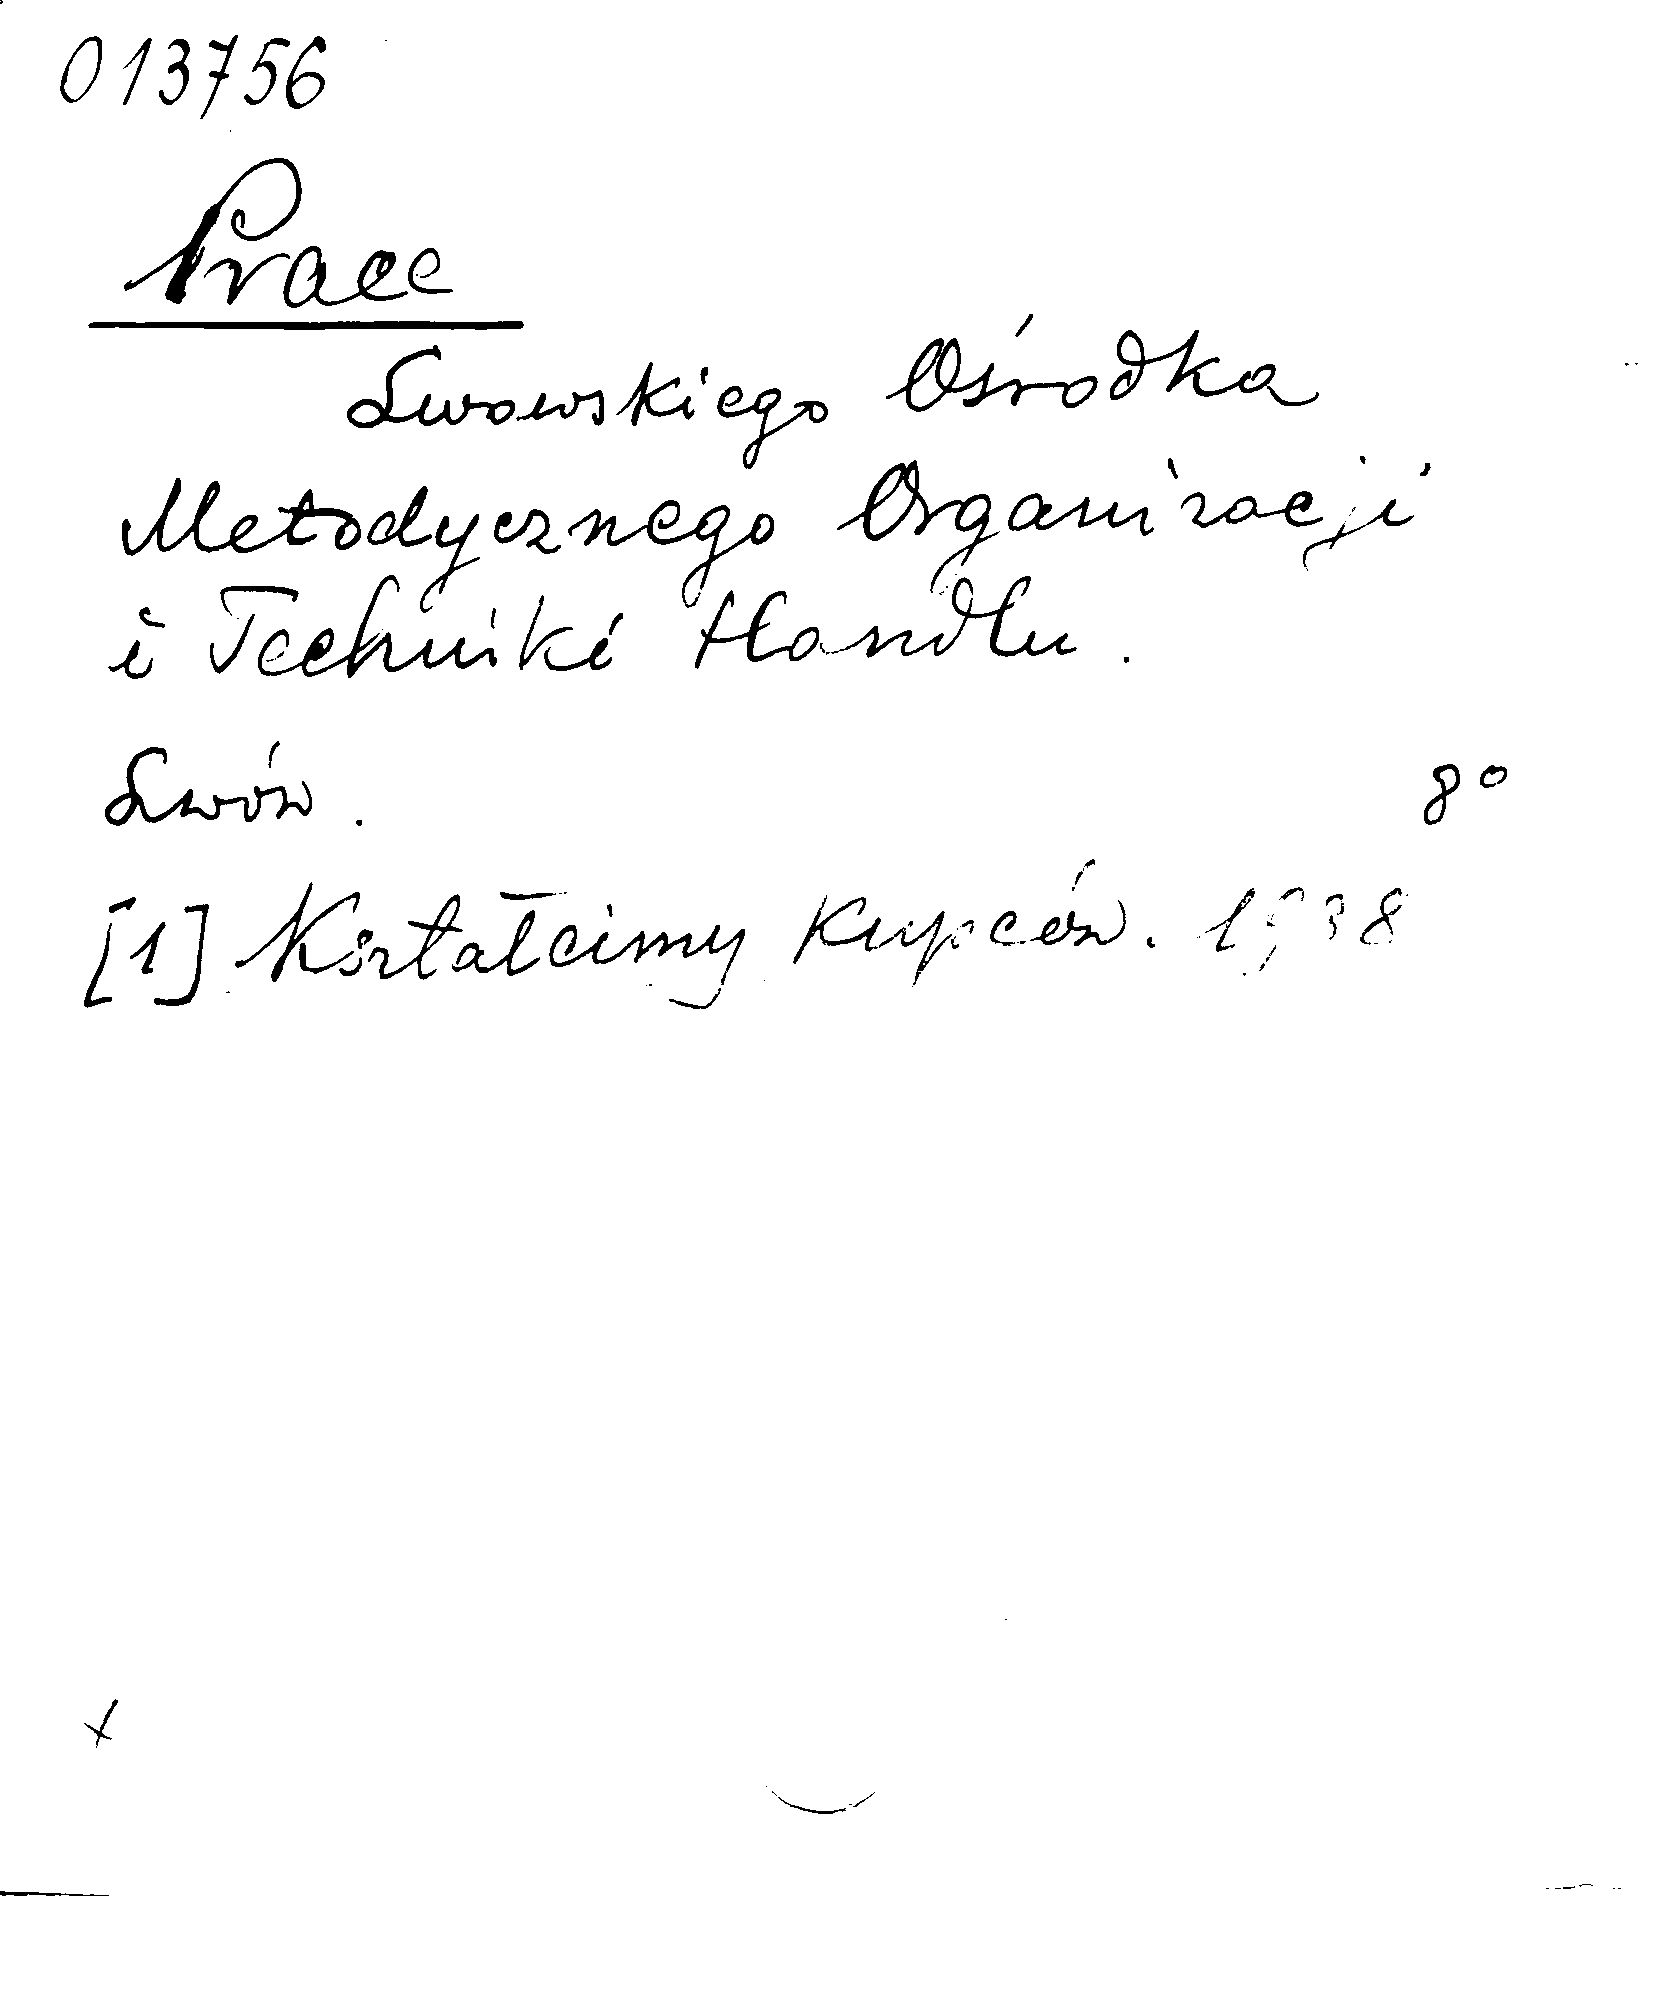 013756
Prace
Lwowskiego Ośrodka
Metodycznego Organizacji
i Techniki Handlu.
Lwów. 8°
[1] Kształcimy kupców. 1938
x